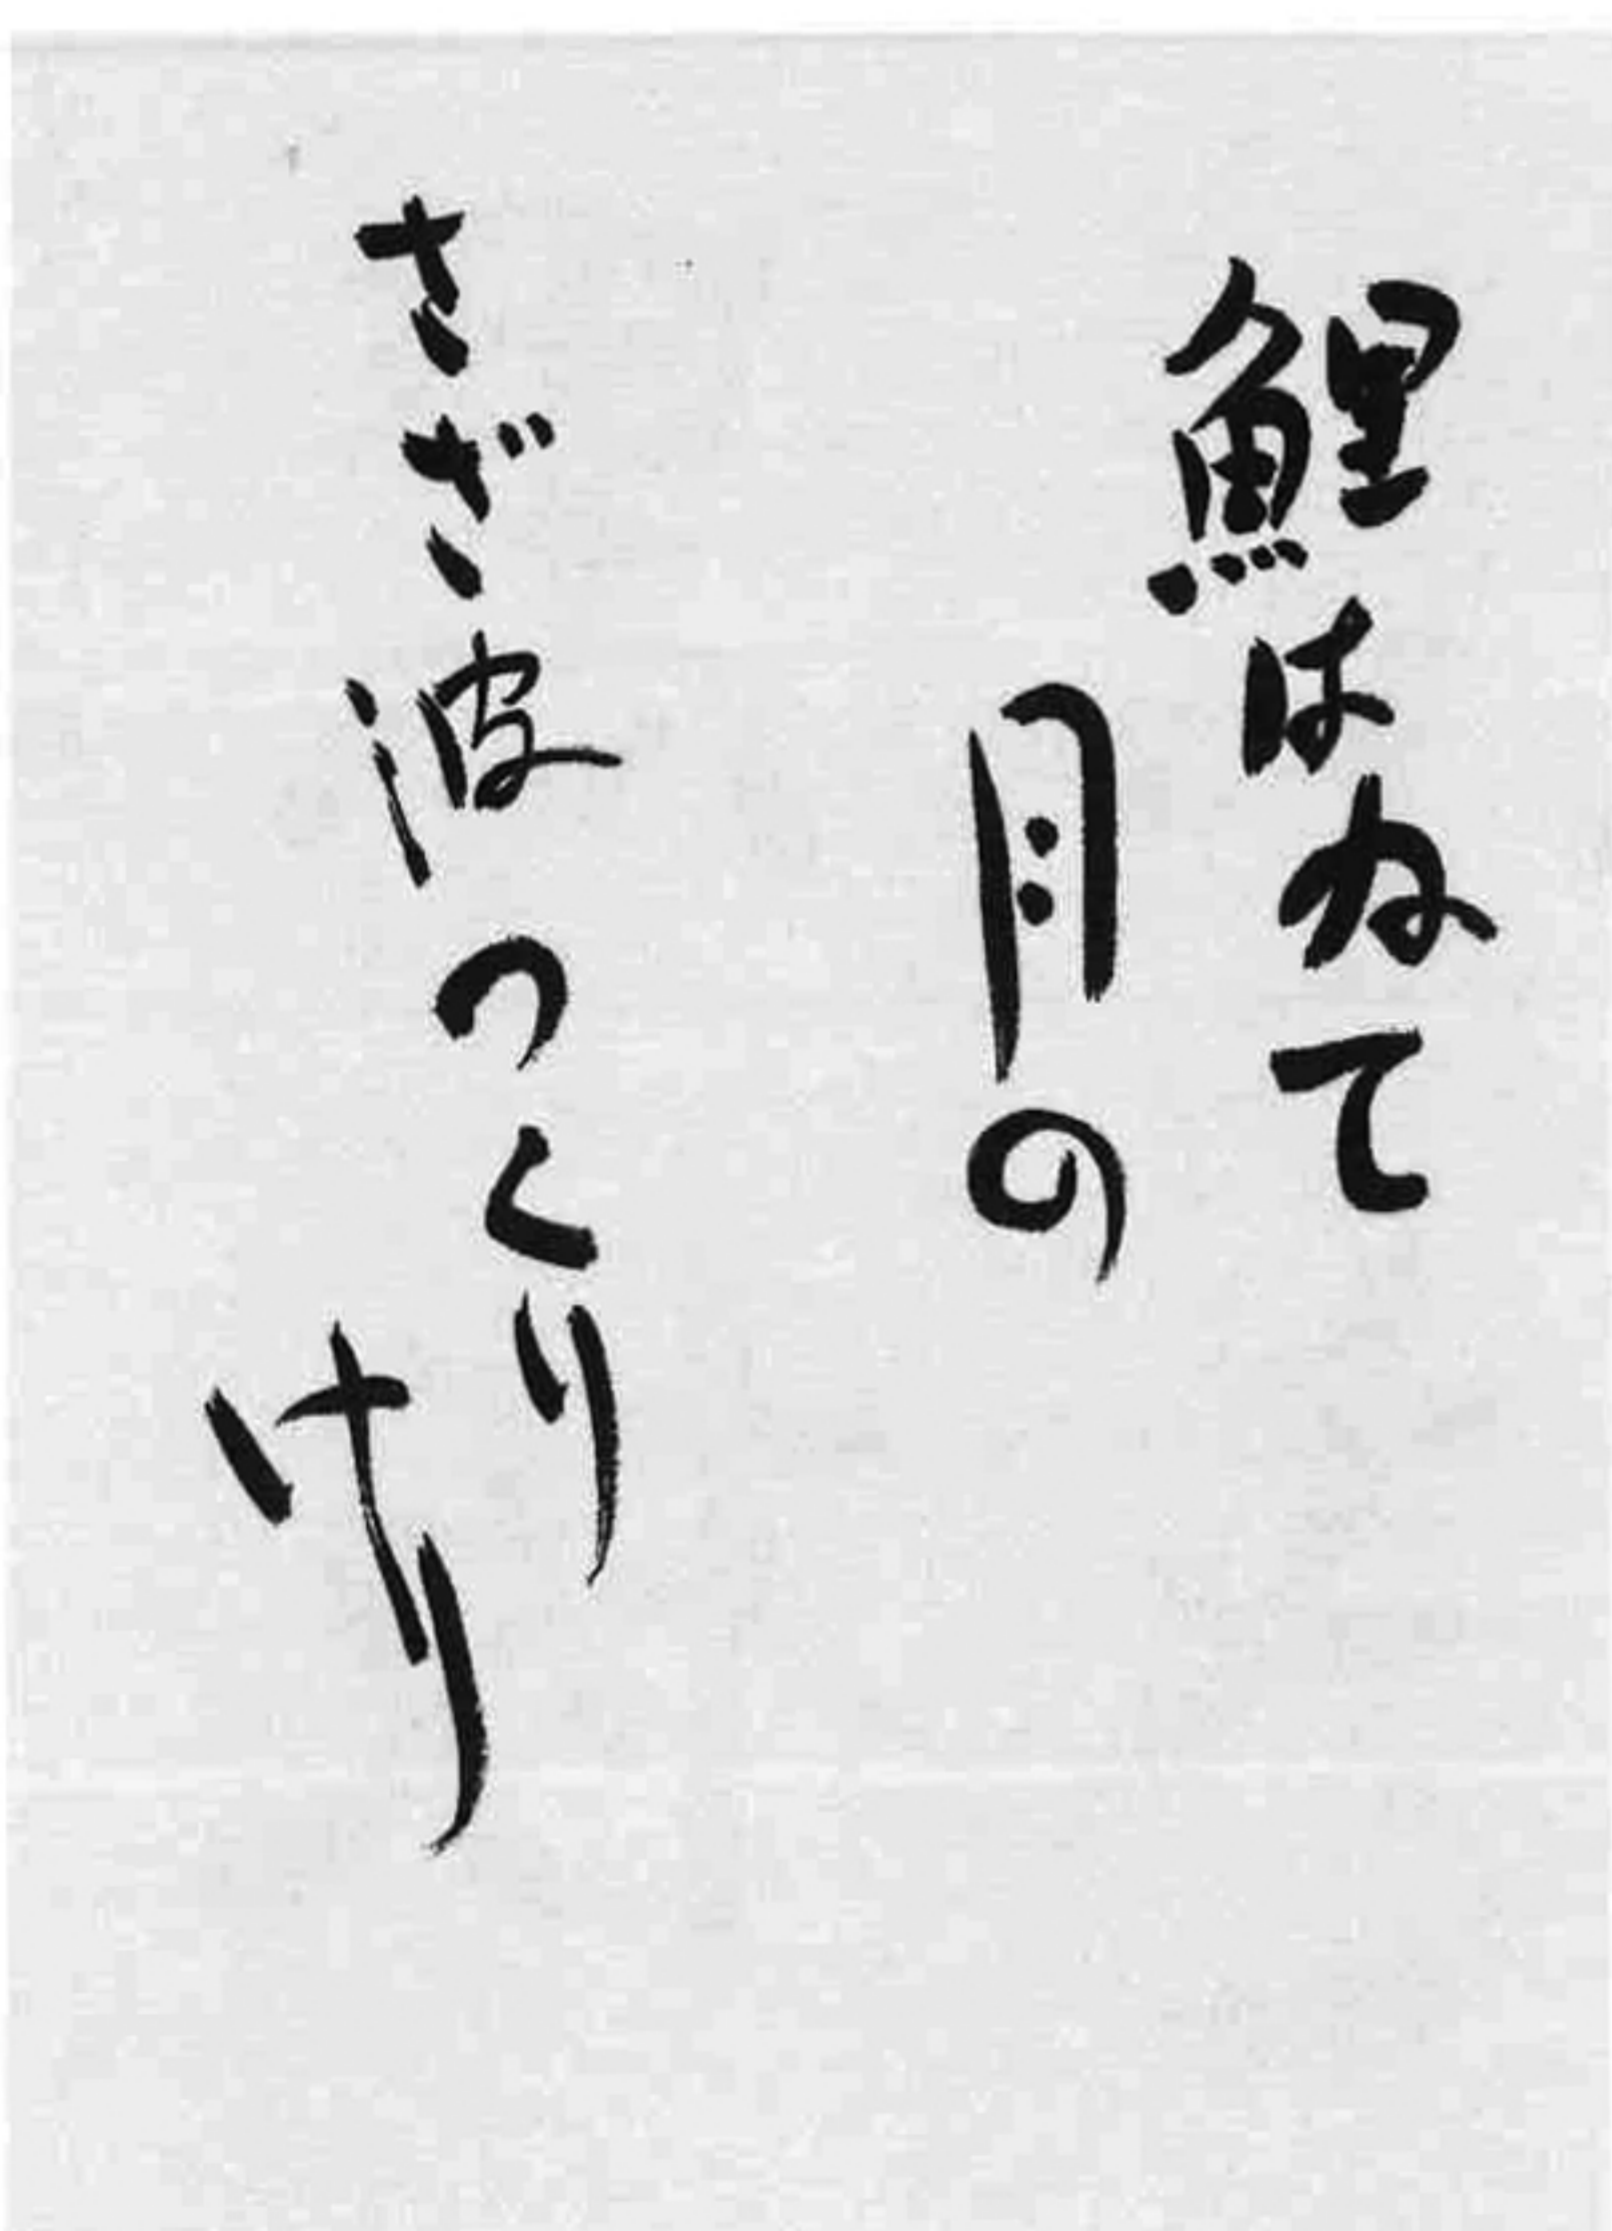 鯉はねて
月の
さざ波つくり
けり